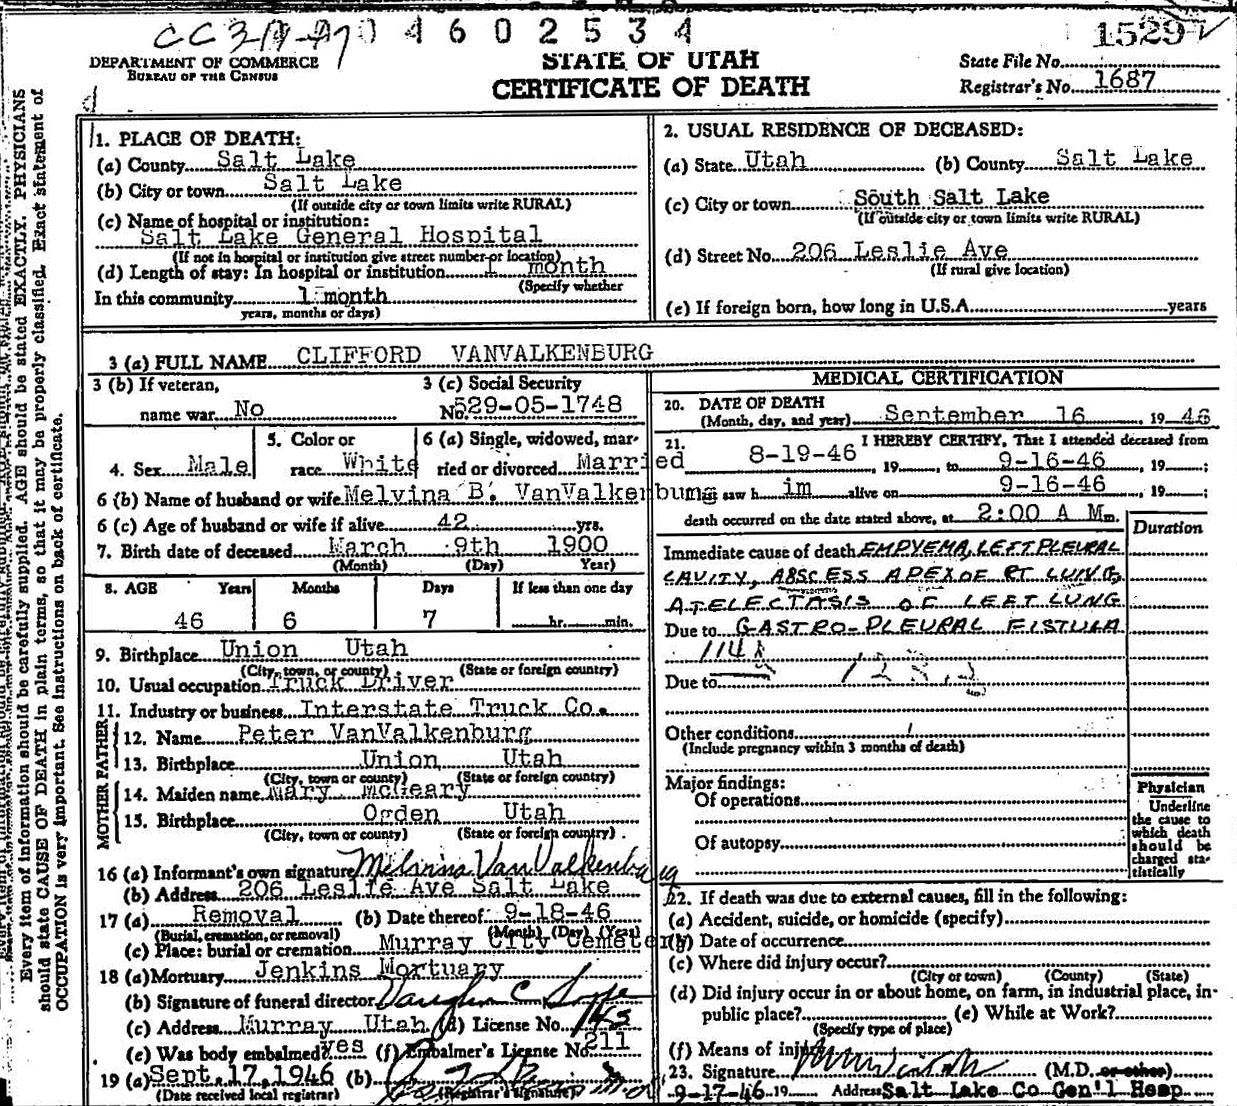 CC 3/19-47 0 4 6 0 2 5 3 4
1529
DEPARTMENT OF COMMERCE
BUREAU OF THE CENSUS
STATE OF UTAH
CERTIFICATE OF DEATH
State File No.
Registrar's No. 1687
Every item of information should be carefully supplied. AGE should be stated EXACTLY. PHYSICIANS
should state CAUSE OF DEATH in plain terms, so that it may be properly classified. Exact statement of
OCCUPATION is very important. See instructions on back of certificate.
1. PLACE OF DEATH:
(a) County Salt Lake
(b) City or town Salt Lake
(If outside city or town limits write RURAL)
(c) Name of hospital or institution:
Salt Lake General Hospital
(If not in hospital or institution give street number or location)
(d) Length of stay: In hospital or institution 1 month
(Specify whether
In this community 1 month
years, months or days)
2. USUAL RESIDENCE OF DECEASED:
(a) State Utah (b) County Salt Lake
(c) City or town South Salt Lake
(If outside city or town limits write RURAL)
(d) Street No. 206 Leslie Ave
(If rural give location)
(e) If foreign born, how long in U.S.A. years
3 (a) FULL NAME CLIFFORD VANVALKENBURG
3 (b) If veteran,
name war No
3 (c) Social Security
No. 529-05-1748
4. Sex Male
5. Color or
race White
6 (a) Single, widowed, mar-
ried or divorced Married
6 (b) Name of husband or wife Melvina B. VanValkenburg
6 (c) Age of husband or wife if alive 42 yrs.
7. Birth date of deceased March 9th 1900
(Month) (Day) Year)
8. AGE Years Months Days If less than one day
46 6 7 hr. min.
9. Birthplace Union Utah
(City, town, or county) (State or foreign country)
10. Usual occupation Truck Driver
11. Industry or business Interstate Truck Co.
FATHER
12. Name Peter VanValkenburg
13. Birthplace Union Utah
(City, town or county) (State or foreign country)
MOTHER
14. Maiden name Mary McGeary
15. Birthplace Ogden Utah
(City, town or county) (State or foreign country)
16 (a) Informant's own signature Melvina VanValkenburg
(b) Address 206 Leslie Ave Salt Lake
17 (a) Removal (b) Date thereof 9-18-46
(Burial, cremation, or removal) (Month) (Day) (Year)
(c) Place: burial or cremation Murray City Cemetery
18 (a) Mortuary Jenkins Mortuary
(b) Signature of funeral director Vaughn C
(c) Address Murray Utah (d) License No. 143
(e) Was body embalmed? yes (f) Embalmer's License No. 211
19 (a) Sept. 17, 1946 (b)
(Date received local registrar) (Registrar's signature)
MEDICAL CERTIFICATION
20. DATE OF DEATH
(Month, day, and year) September 16 19 46
21. I HEREBY CERTIFY, That I attended deceased from
8-19-46, 19 , to 9-16-46, 19 ;
last saw h im alive on 9-16-46, 19 ;
death occurred on the date stated above, at 2:00 A Mm.
Duration
Immediate cause of death EMPYEMA, LEFT PLEURAL
CAVITY, ABSCESS APEX OF RT LUNG,
ATELECTASIS OF LEFT LUNG
Due to GASTRO-PLEURAL FISTULA
114
Due to
Other conditions
(Include pregnancy within 3 months of death)
Major findings:
Of operations
Of autopsy
Physician
Underline
the cause to
which death
should be
charged sta-
tistically
22. If death was due to external causes, fill in the following:
(a) Accident, suicide, or homicide (specify)
(b) Date of occurrence
(c) Where did injury occur?
(City or town) (County) (State)
(d) Did injury occur in or about home, on farm, in industrial place, in-
public place? (e) While at Work?
(Specify type of place)
(f) Means of injury
23. Signature (M.D. or other)
9-17-46 19 Address Salt Lake Co Gen'l Hosp